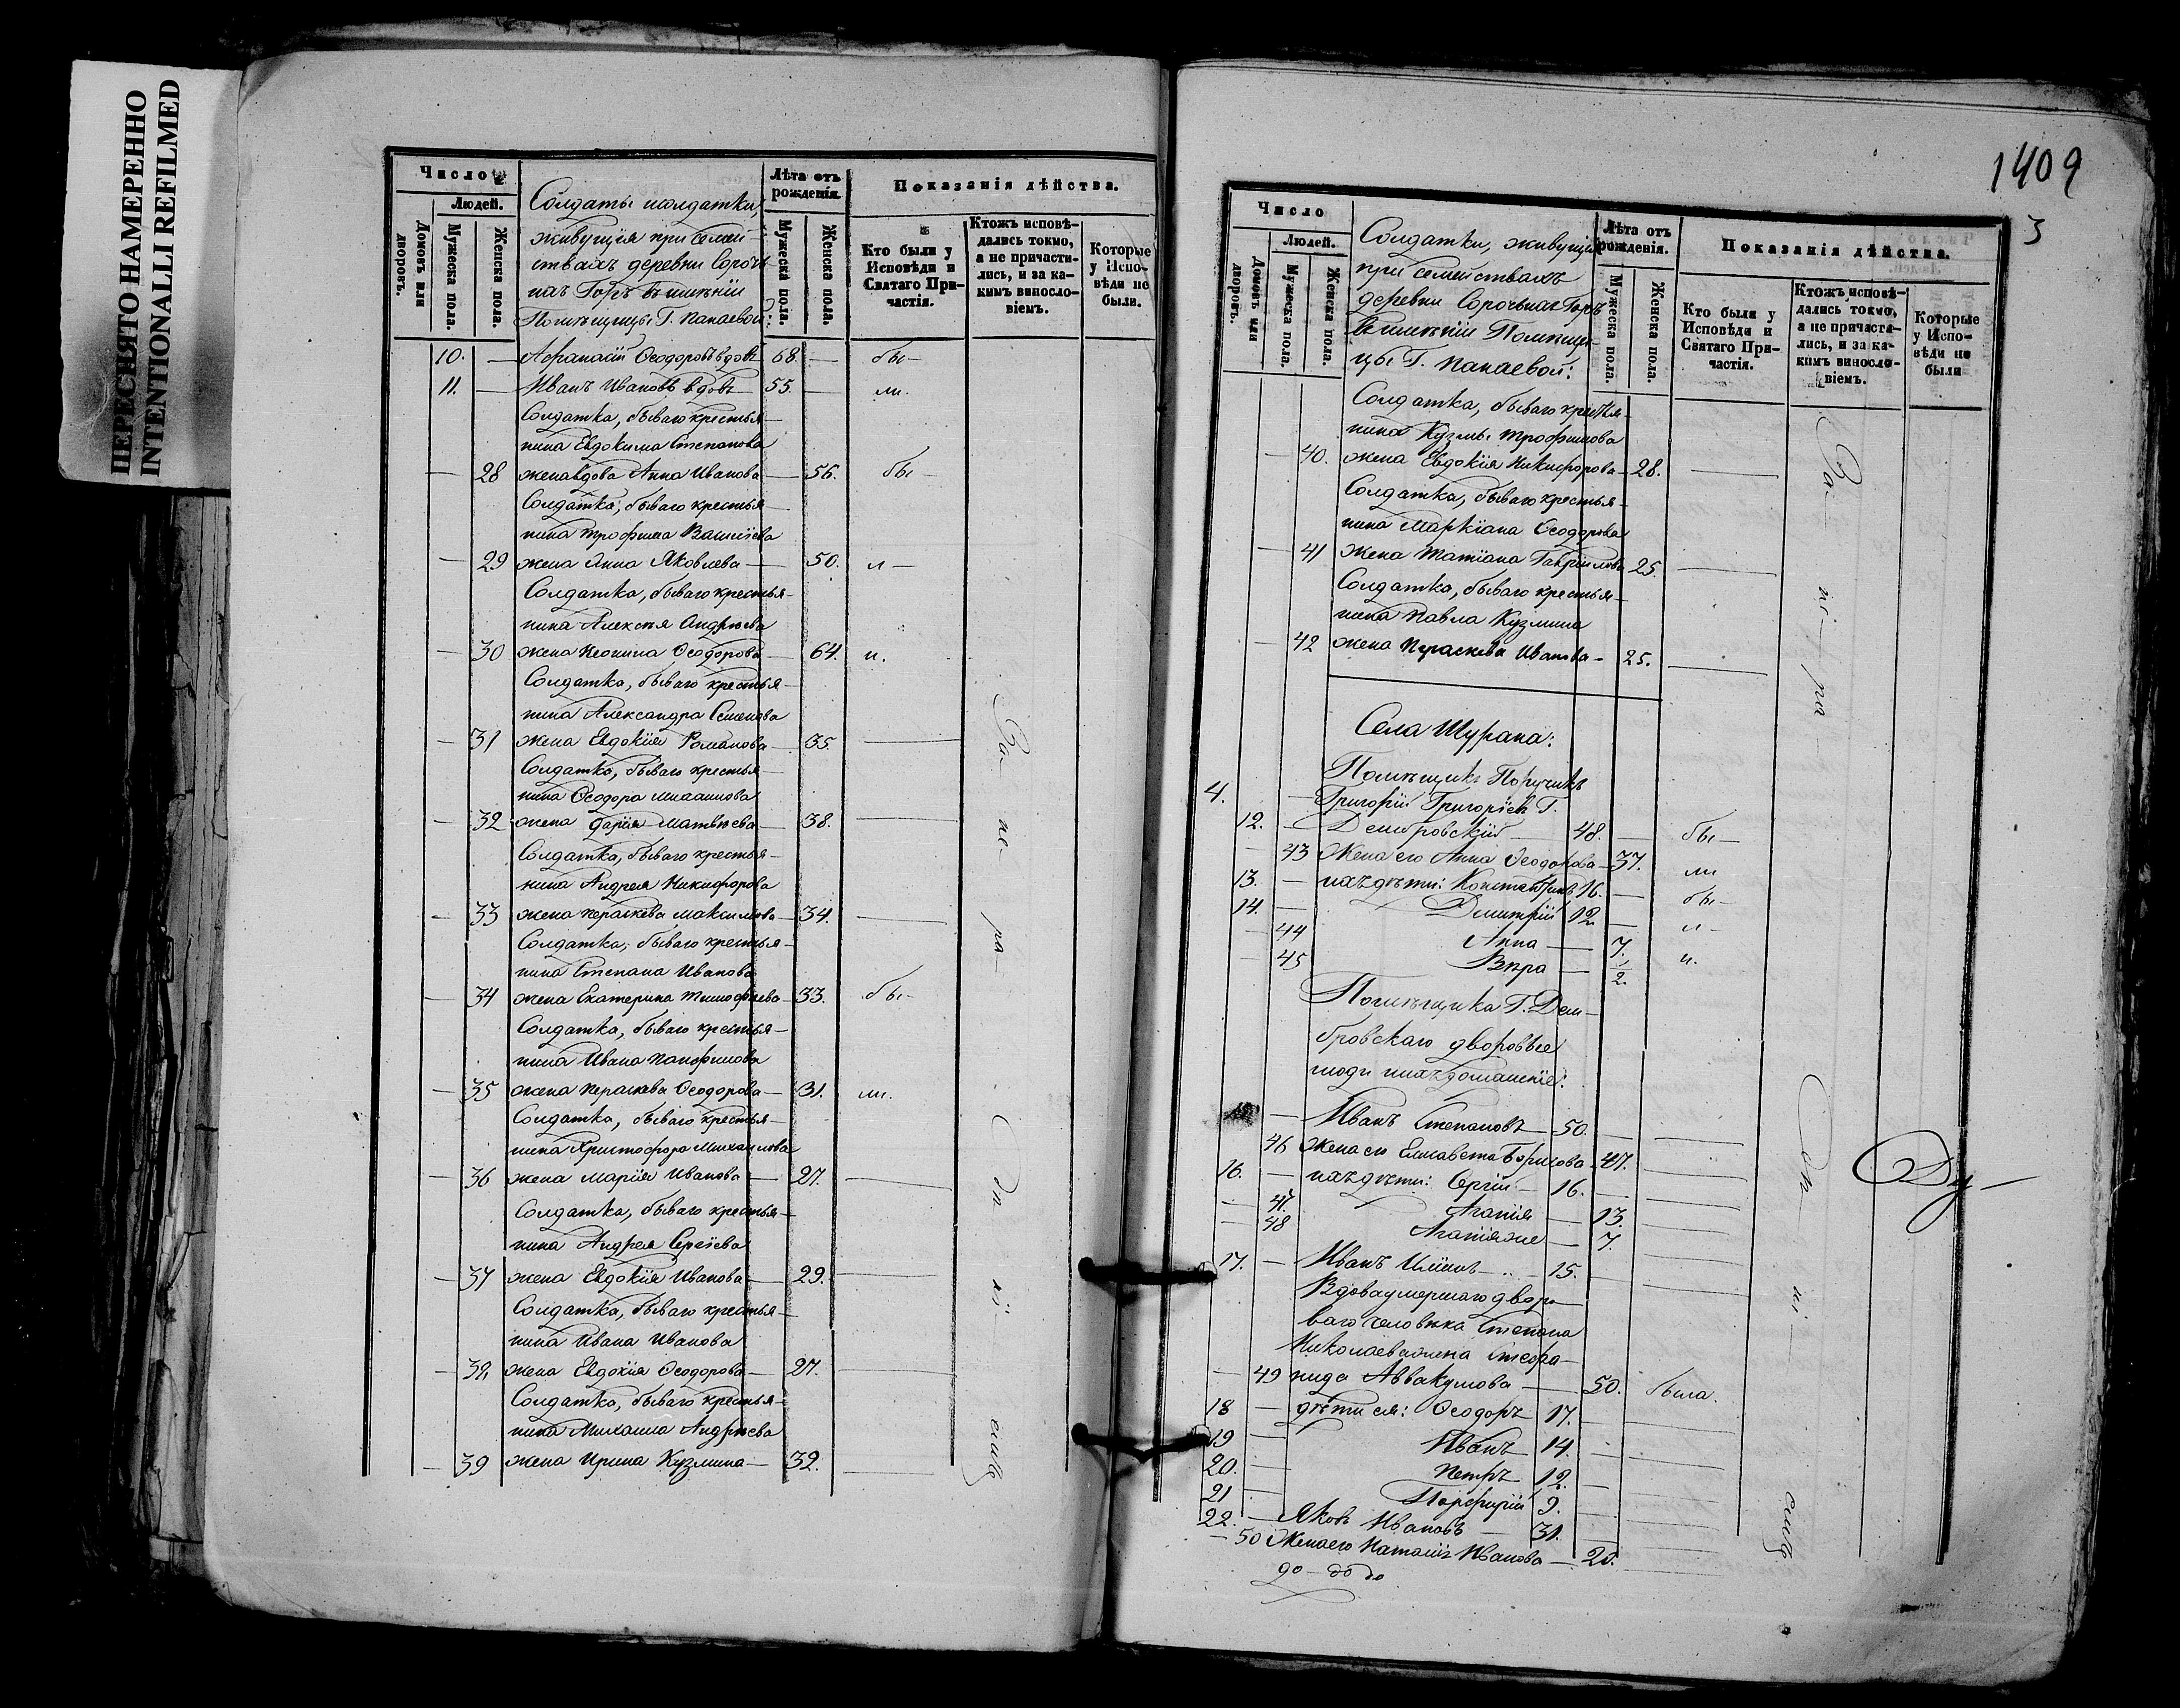 ПЕРЕСНЯТО НАМЕРЕННО
INTENTIONALLI REFILMED
Число
Людей.
Домовъ или дворовъ.
Мужеска пола.
Женска пола.
Солдаты и солдатки,
живущія при семей-
ствахъ деревни Сорочь-
ихъ Горъ въ имѣніи
Помѣщицы Г. Панаевой:
Лѣта отъ рожденія.
Мужеска пола.
Женска пола.
Показанія дѣйства.
Кто были у Исповѣди и Святаго При-частія.
Ктожъ исповѣ-дались токмо, а не причасти-лись, и за ка-кимъ винослo-віемъ.
Которые у Испо-вѣди не были.
10. — Афанасій Ѳеодоровъ вдовъ 68. — бы-
11. — Иванъ Ивановъ вдовъ 55. — ли.
Солдатка, бываго крестья-
нина Евдокима Степанова
— 28 жена вдова Анна Иванова — 56. бы-
Солдатка, бываго крестья-
нина Трофима Василіева
— 29 жена Анна Яковлева — 50. л-
Солдатка, бываго крестья-
нина Алексѣя Андрѣева
— 30 жена Неонила Ѳеодорова — 64. и.
Солдатка, бываго крестья-
нина Александра Семенова
— 31 жена Евдокія Романова — 35.
Солдатка, бываго крестья-
нина Ѳеодора
— 32 жена Дарія Матвѣева — 38.
Солдатка, бываго крестья-
нина Андрея Никифорова
— 33 жена Параскева Максимова — 34.
Солдатка, бываго крестья-
нина Степана Иванова
— 34 жена Екатерина Тимофѣева — 33. бы-
Солдатка, бываго крестья-
нина Ивана Панфилова
— 35 жена Параскева Ѳеодорова — 31. ли.
Солдатка, бываго крестья-
нина Христофора Михаилова
— 36 жена Марія Иванова — 27.
Солдатка, бываго крестья-
нина Андрея Сергіева
— 37 жена Евдокія Иванова — 29.
Солдатка, бываго крестья-
нина Ивана Иванова
— 38 жена Евдокія Ѳеодорова — 27.
Солдатка, бываго крестья-
нина Михаила Андрѣева
— 39 жена Ирина Кузмина — 32.
1409
3
Число
Людей.
Домовъ или дворовъ.
Мужеска пола.
Женска пола.
Солдатки, живущія
при семействахъ
деревни Сорочьихъ Горъ
въ имѣніи Помѣщи-
цы Г. Панаевой:
Лѣта отъ рожденія.
Мужеска пола.
Женска пола.
Показанія дѣйства.
Кто были у Исповѣди и Святаго При-частія.
Ктожъ исповѣ-дались токмо, а не причасти-лись, и за ка-кимъ винослo-віемъ.
Которые у Испо-вѣди не были
Солдатка, бываго крестья-
нина Кузмы Трофимова
— 40. жена Евдокія Никифорова — 28.
Солдатка, бываго крестья-
нина Маркіана Ѳеодорова
— 41 жена Татіана Гавріилова 25.
Солдатка, бываго крестья-
нина Павла Кузмина
— 42 жена Параскева Иванова — 25.
Села Шурана:
Помѣщикъ Поручикъ
4. — Григорій Григоріевъ Г.
12. — Дембровскій — 48. — бы-
— 43 Жена его Анна Ѳеодорова — 37. ли
13. — ихъ дѣти: Константинъ 16. — бы-
14. — Димитрій 12 — л-
— 44 Анна — 7. и.
— 45 Вѣра — 1/2.
Помѣщика Г. Дем-
бровскаго дворовые
люди и ихъ домашніе:
— Иванъ Степановъ — 50. —
46 Жена его Елисавета Борисова — 47.
16. — ихъ дѣти: Сергій — 16. —
— 47. Агапія — 13.
— 48 — 7.
17. — Иванъ — 15. —
Вдова умершаго дворо-
ваго человѣка Степана
Николаева жена
— 49 нида Аввакумова — 50. была.
18 — дѣти ея: Ѳеодоръ 17. —
19 — Иванъ 14. —
20. — Петръ 12. —
21 — Порфирій 9. —
22. — Яковъ Ивановъ — 31. —
— 50 Жена его Наталія Иванова — 28.